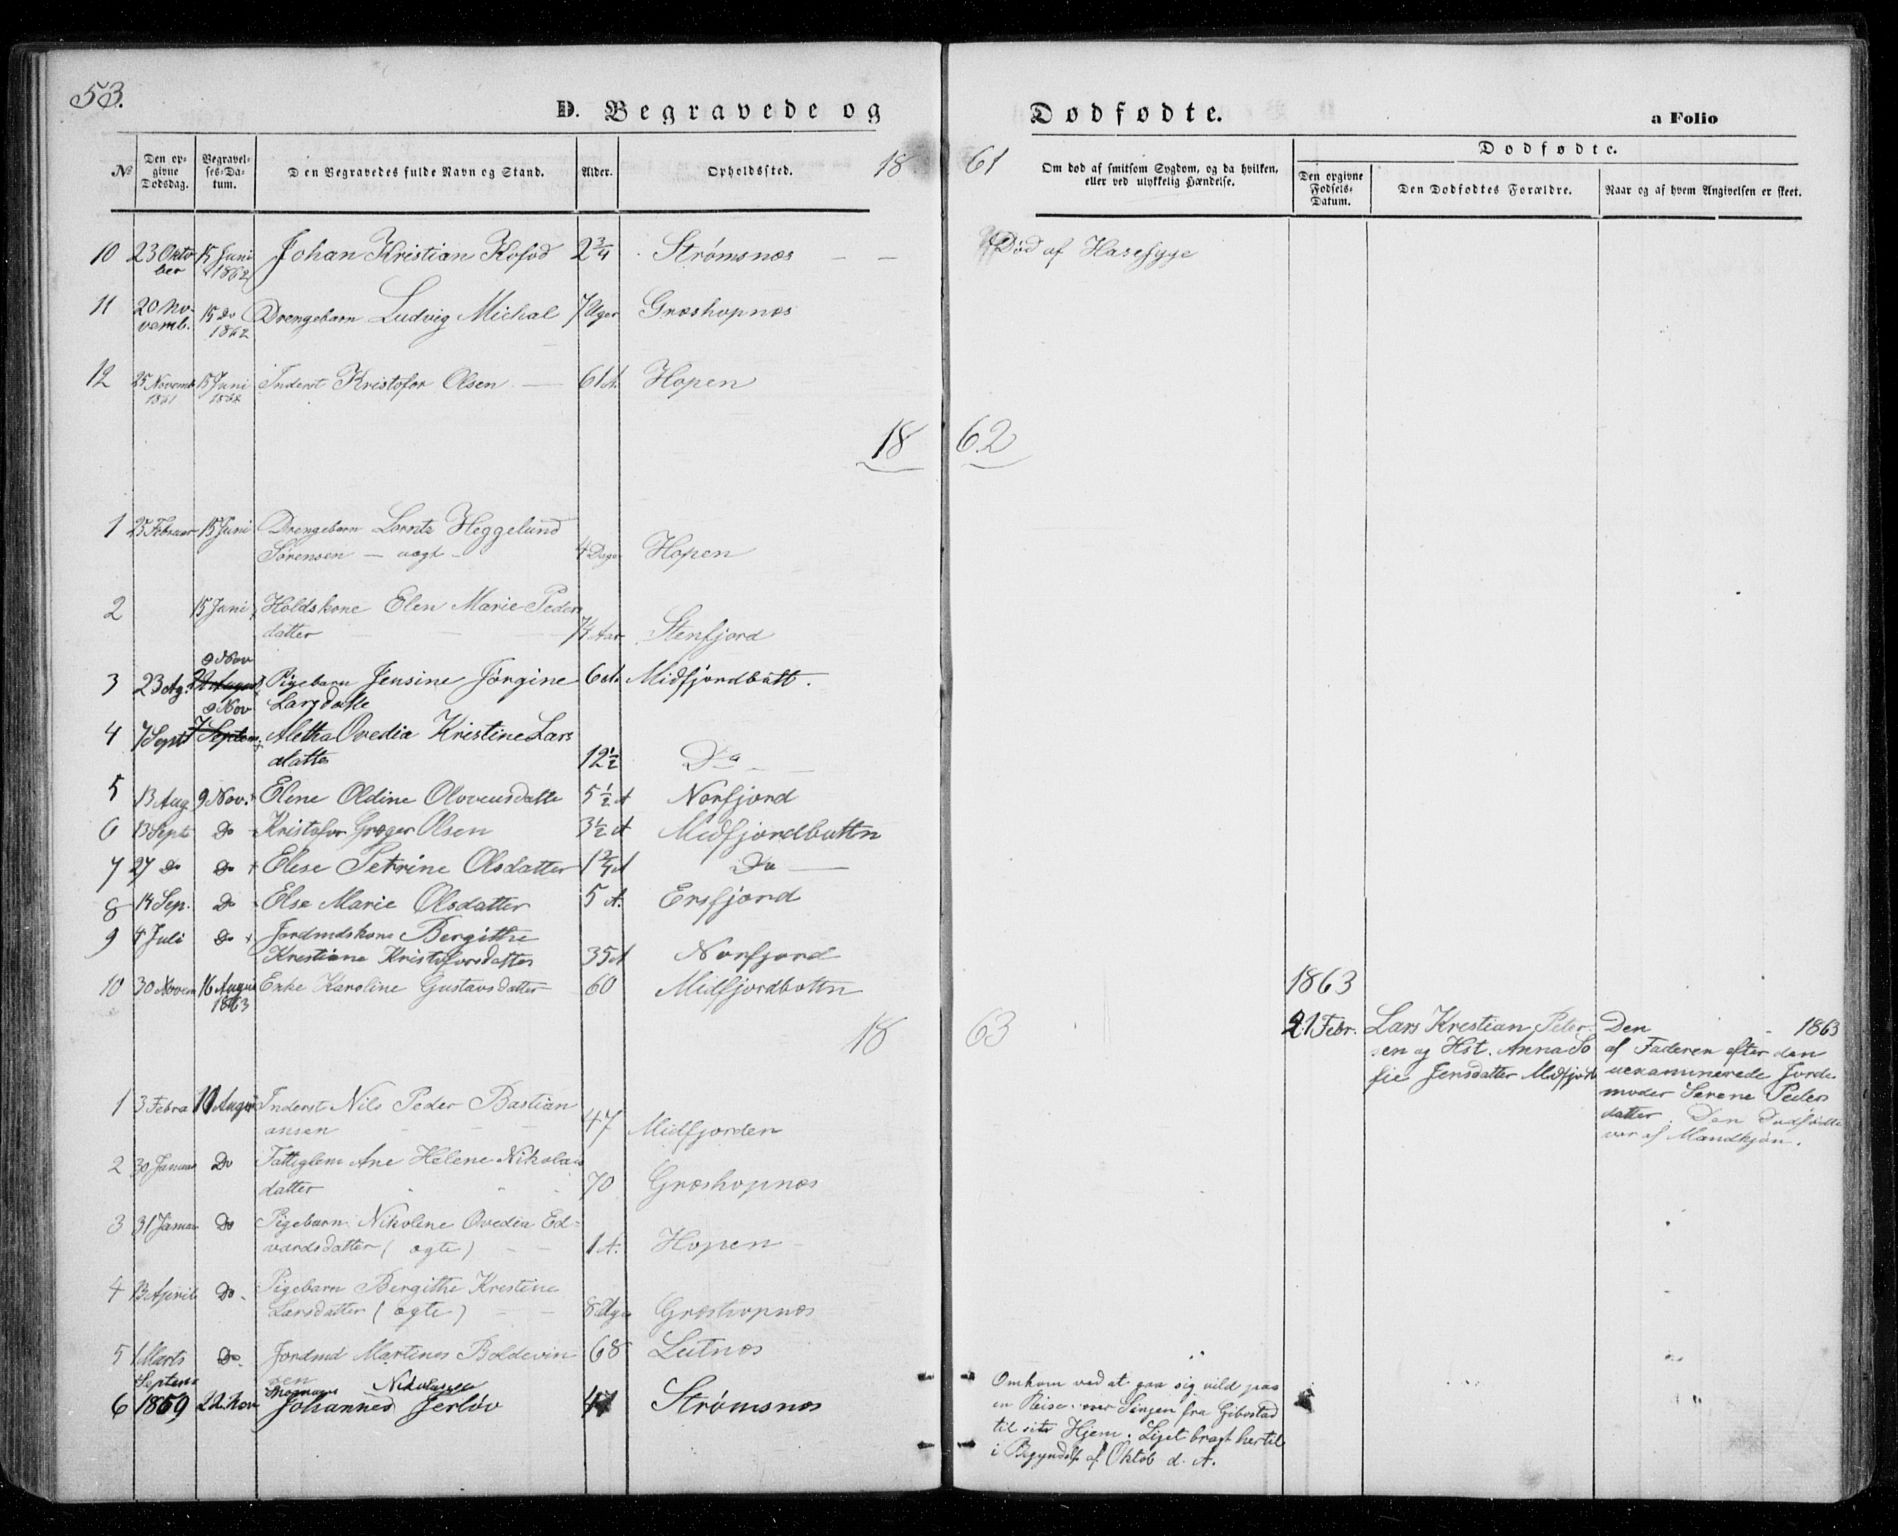 53.
D. Begravede og Dødfødte. a Folio
№ Den opgivne Dødsdag. Begravelses-Datum. Den Begravedes fulde Navn og Stand. Alder. Opholdssted. 18 61 Om død af smitsom Sygdom, og da hvilken, eller ved ulykkelig Hændelse. Dødfødte. Den opgivne Fødsels-Datum. Den Dødfødtes Forældre. Naar og af hvem Angivelsen er skeet.
10 23 Oktober 15 Juni 1862 Johan Kristian Kofod 2 3/4 Strømsnæs — — Død af Hasesyge
11 20 Novemb. 15 Do 1862 Drengebarn Ludvig Michal 7 Uger Græshopnæs
12 25 Novemb 1861 15 Juni 1862 Inderst Kristofor Olsen — 61 A. Hopen
18 62
1 25 Februar 15 Juni Drengebarn Lorntz Heggelund
Sørensen — ægt — 4 Dage Hopen
2 15 Juni Holdskone Elen Marie Peders
datter — — 74 Aar Stenfjord
9 Nov
3 23 Ag. 22 August Pigebarn Jensine Jørgine 6 A. Midfjordbott.
9 Nov Larsdatte
4 7 Sept 7 Septem Aletha Ovedia Kristine Lars
datter 12 1/2 Do —
5 13 Aug 9 Nov. Elene Oldine Olovensdatte 5 1/2 A Norfjord
6 13 Sept Do Kristofor Græger Olsen 3 1/2 A Midfjordbuttn
7 27 Do Do Elese Petrine Olsdatter 1 3/4 A Do —
8 14 Sep. Do Else Marie Olsdatter 5 A. Ersfjord
9 4 Juli Do Jordmdskone Bergithe
Krestiane Kristoforsdatter 35 A Norfjord
10 30 Novem 16 August 1863 Enke Karoline Gustavsdatter 60 Midfjordbottn
18 63
1863
21 Febr. Lars Krestian Petersen og Hst. Anna Sofie Jensdatter Midfjord
Den 1863
af Faderen efter den
uexaminerede Jorde
moder Serene Peders
datter. Den Dødfødte
var af Mandkjøn.
1 3 Febra 16 August Inderst Nils Peder Bastian
ansen 47 Midfjorden
2 30 Januar Do Fattiglem Ane Helene Nikolai
datter 70 Græshopnæs
3 31 Januar Do Pigebarn Nikoline Ovedia Ed=
vardsdatter (ægte) 1 A. Hopen
4 13 April Do Pigebarn Bergithe Krestine
Larsdatter (ægte) 8 Uger Græshopnæs
5 1 Marts Do Jordmd Martines Boldevin
sen 68 Lutnæs
Septem Nikolaisen
6 1859 22. Nov Johannes Jerløv 47 Strømsnæs
Omkom ved at gaa sig vild paa
en Reise over Sinjen fra Gibostad
til sit Hjem. Liget bragt hertil
i Begyndels af Oktob d. A.